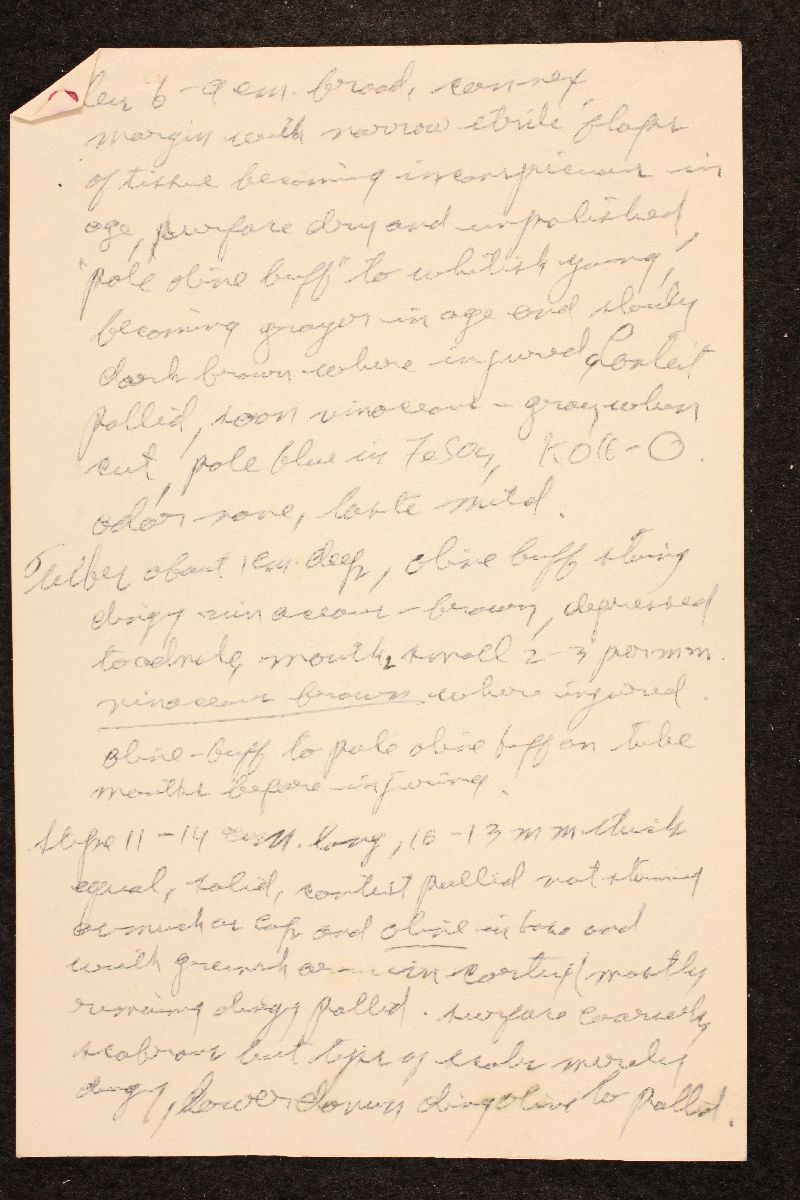 6-9 cm. broad, convex,
margin with narrow sterile flaps
of tissue becoming inconspicuous in
age, surface dry and unpolished,
"pale olive buff" to whitish young,
becoming grayer in age and slowly
dark brown where injured, Context
pallid, soon vinaceous-gray when
cut, pale blue in FeSO4, KOH-O.
odor none, taste mild.
Tubes about 1 cm. deep, olive buff staining
dingy vinaceous-brown, depressed
to adnate, mouths small 2-3 per mm.
vinaceous brown where injured.
olive-buff to pale olive buff on tube
mouths before injuring.
Stipe 11-14 cm. long, 10-13 mm thick
equal, solid, context pallid not staining
as much as cap and olive in base and
with greenish in cortex mostly
remaining dingy pallid. surface coarsely
scabrous but tips of scabs merely
dingy, lower down dingy olive to pallid.